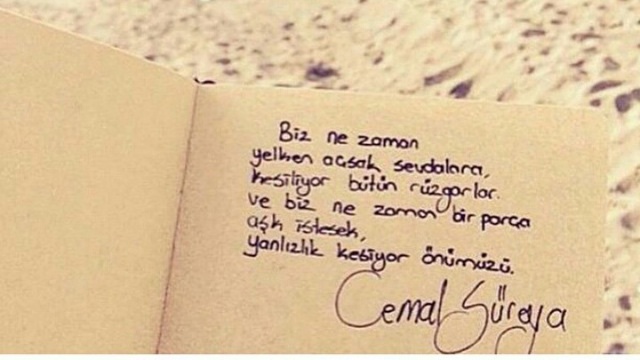 Biz ne zaman
yelken açsak sevdalara,
kesiliyor bütün rüzgarlar.
ve biz ne zaman bir parça
aşk istesek,
yanlızlık kesiyor önümüzü.
Cemal Süreya